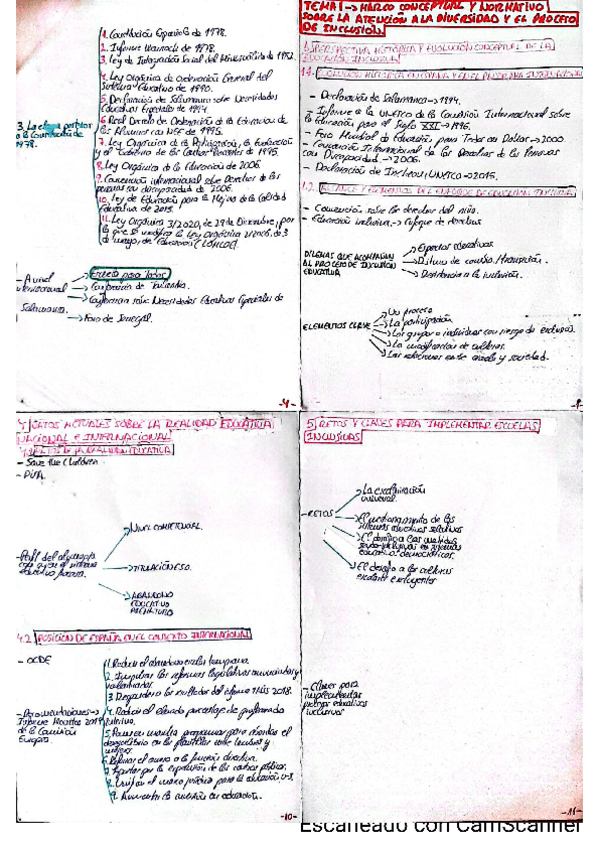 1. Constitución Española de 1978.
2. Informe Warnock de 1978.
3. Ley de Integración Social del Minusválido de 1982.
4. Ley Orgánica de Ordenación General del
Sistema Educativo de 1990.
5. Declaración de Salamanca sobre Necesidades
Educativas Especiales de 1994
6. Real Decreto de Ordenación de la Educación de
los Alumnos con NEE de 1995.
7. Ley Orgánica de la Participación, la Evaluación
y el Gobierno de los Centros Docentes de 1995.
8. Ley Orgánica de la Educación de 2006.
9. Convención internacional sobre Derechos de las
personas con discapacidad de 2006.
10. Ley de Educación para la Mejora de la Calidad
Educativa de 2013.
11. Ley Orgánica 3/2020, de 29 de Diciembre, por
la que se modifica la Ley orgánica 2/2006, de 3
de mayo, de Educación (LOMLOE)
3. La etapa posterior
a la Constitución de
1978.
- A nivel
internacional
Educación para Todos
Conferencia de Tailandia.
Conferencia sobre Necesidades Educativas Especiales de
Salamanca.
Foro de Senegal.
-4-
TEMA 1 → MARCO CONCEPTUAL Y NORMATIVO
SOBRE LA ATENCIÓN A LA DIVERSIDAD Y EL PROCESO
DE INCLUSIÓN.
1. PERSPECTIVA HISTÓRICA Y EVOLUCIÓN CONCEPTUAL DE LA
EDUCACIÓN INCLUSIVA
1.1.
- Declaración de Salamanca → 1994.
- Informe a la UNESCO de la Comisión Internacional sobre
la Educación para el Siglo XXI → 1996.
- Foro Mundial de Educación para Todos en Dakar → 2000
- Convención Internacional de los Derechos de las Personas
con Discapacidad. → 2006.
- Declaración de Incheon, UNESCO → 2015.
1.2. ALCANCE Y ELEMENTOS DEL ENFOQUE DE EDUCACIÓN INCLUSIVA
- Convención sobre los derechos del niño.
- Educación inclusiva → enfoque de derechos
DILEMAS QUE ACOMPAÑAN
AL PROCESO DE INCLUSIÓN
EDUCATIVA
educativos
Resistencia a la inclusión.
ELEMENTOS CLAVE
Un proceso
La participación
Los grupos o individuos con riesgo de exclusión.
La modificación de culturas.
Las relaciones entre escuela y sociedad.
-1-
4. DATOS ACTUALES SOBRE LA REALIDAD EDUCATIVA
NACIONAL E INTERNACIONAL
4.1. DE LA REALIDAD EDUCATIVA
- Save the Children
- PISA.
- Perfil del alumnado
NIVEL COMPETENCIAL.
TITULACIÓN ESO.
ABANDONO
EDUCATIVO
PREMATURO
4.2 POSICIÓN DE ESPAÑA EN EL CONTEXTO INTERNACIONAL
- OCDE
- Recomendaciones →
Informe Monitor 2019
de la Comisión
Europea
1. Reducir el abandono escolar temprano.
2. Impulsar las reformas legislativas
3. los resultados del informe TALIS 2018.
4. Reducir el elevado porcentaje de profesorado
interino.
5. Poner en marcha programas para abordar el
desequilibrio en las plantillas entre hombres y
mujeres.
6. Reforzar el acceso a la función directiva.
7. la expansión de los centros públicos.
8. Unificar el marco jurídico para la educación 0-3.
9. Aumentar la inversión en educación.
-10-
5. RETOS Y CLAVES PARA IMPLEMENTAR ESCUELAS
INCLUSIVAS
- RETOS
La
El cuestionamiento de los
sistemas educativos selectivos
El desafío a las
democráticos.
El desafío a las culturas
escolares excluyentes
- Claves para
implementar
educativos
inclusivos
-11-
Escaneado con CamScanner